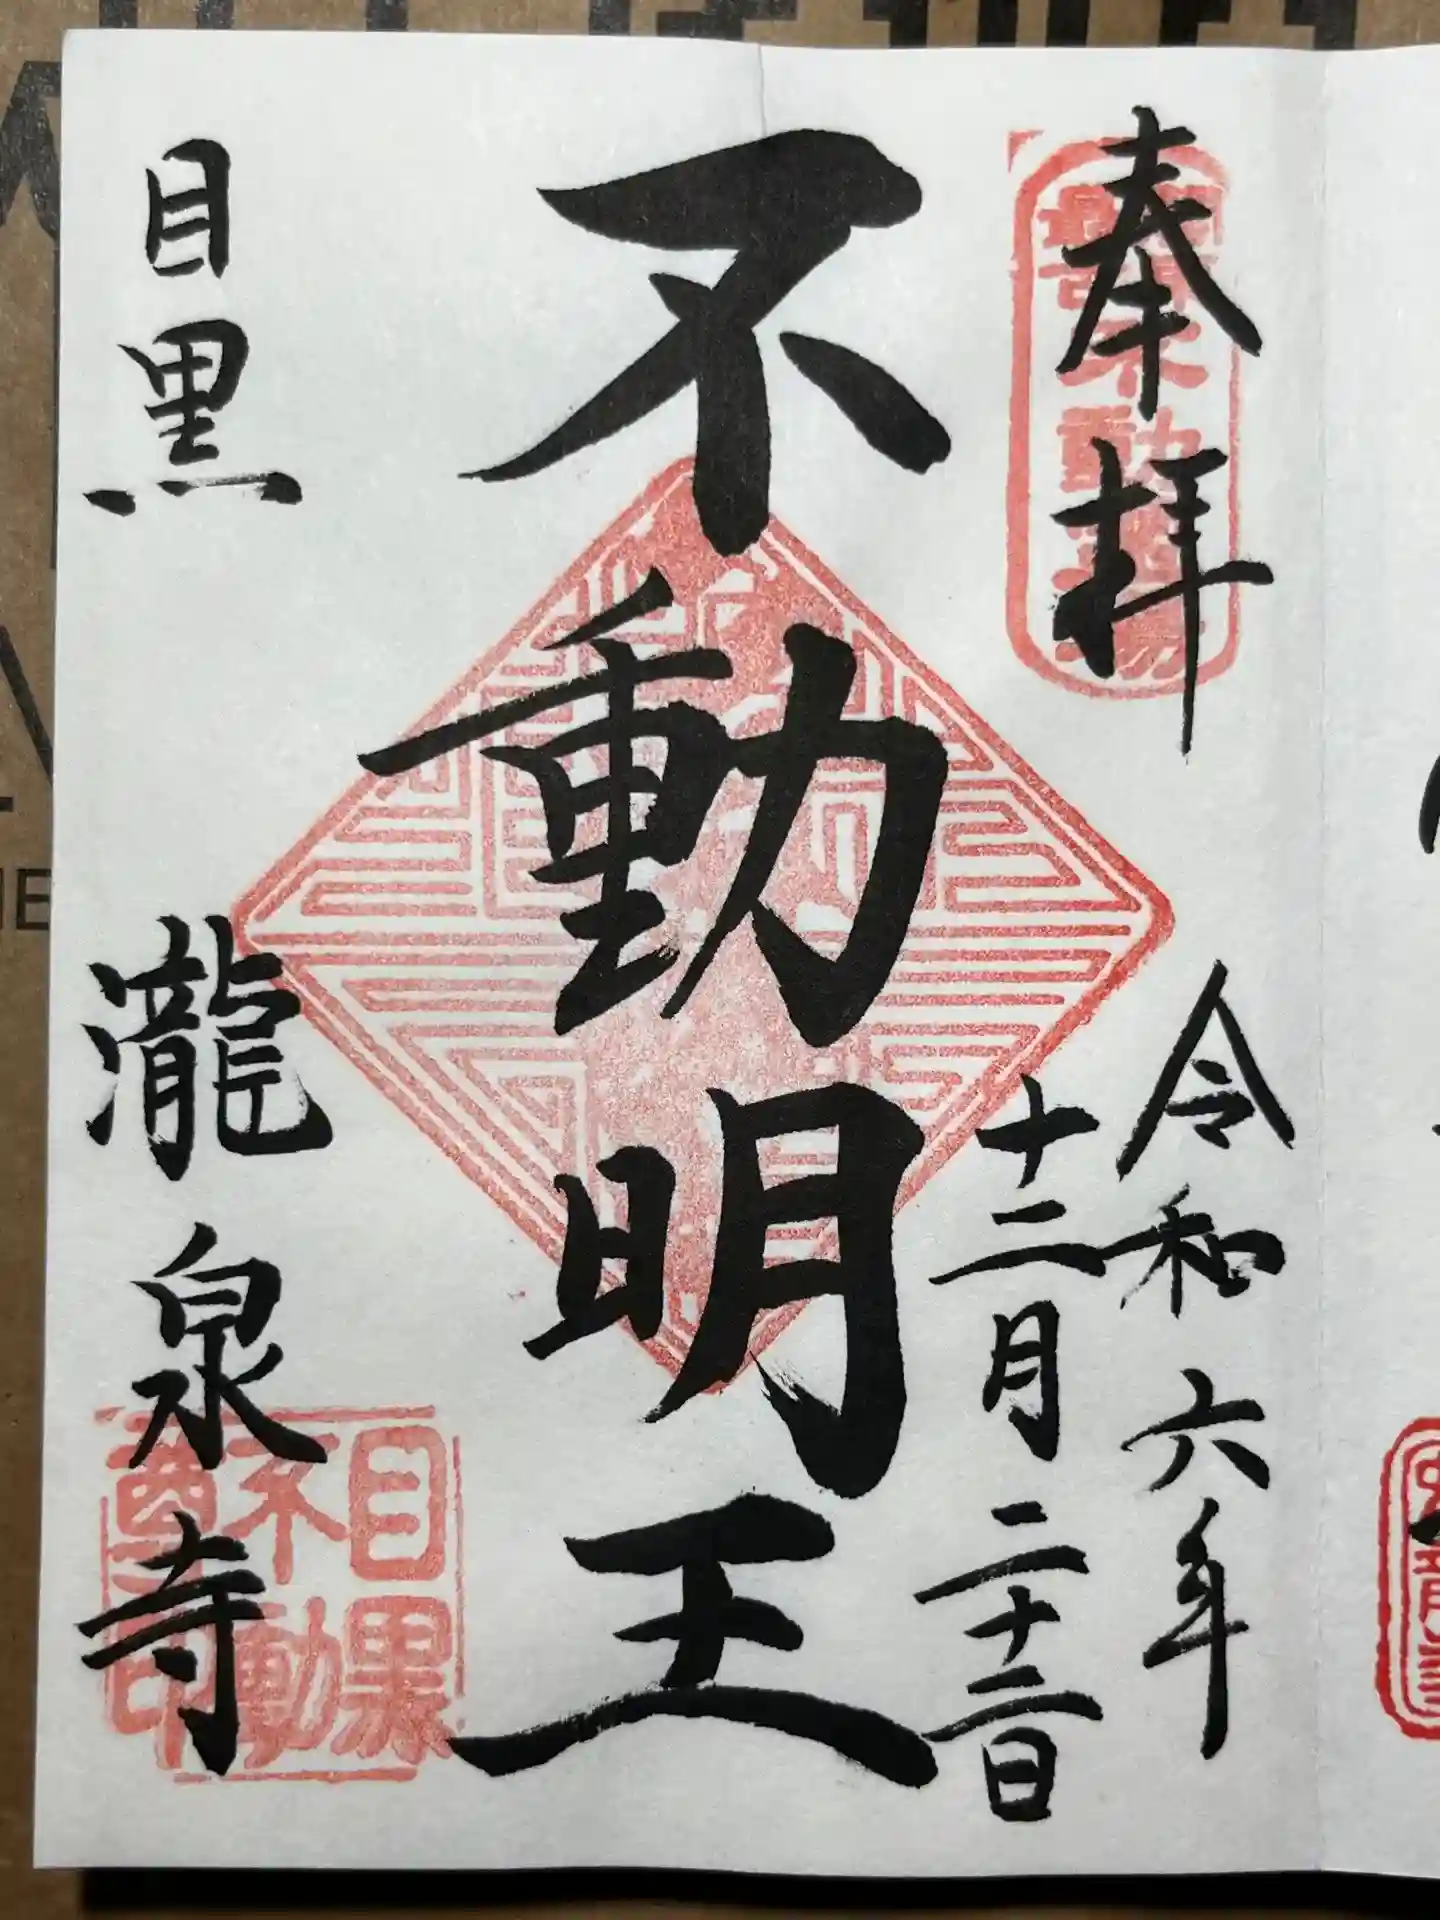 奉拝
令和六年
十二月二十二日
不動明王
目黒
瀧泉寺
目黒
不動
尊印